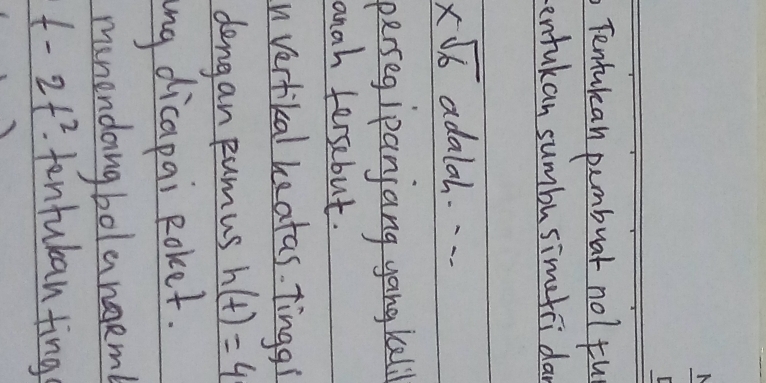 Tentukan pembuat nol fu
entukan sumbu simetri dan
x √6 adalah...
persegi panjang yang kelil
anah tersebut.
n vertikal keatas. Tinggi
dengan rumus h(t) = 4
ng dicapai roket.
menendang bola
t - 2t². tentukan tingg